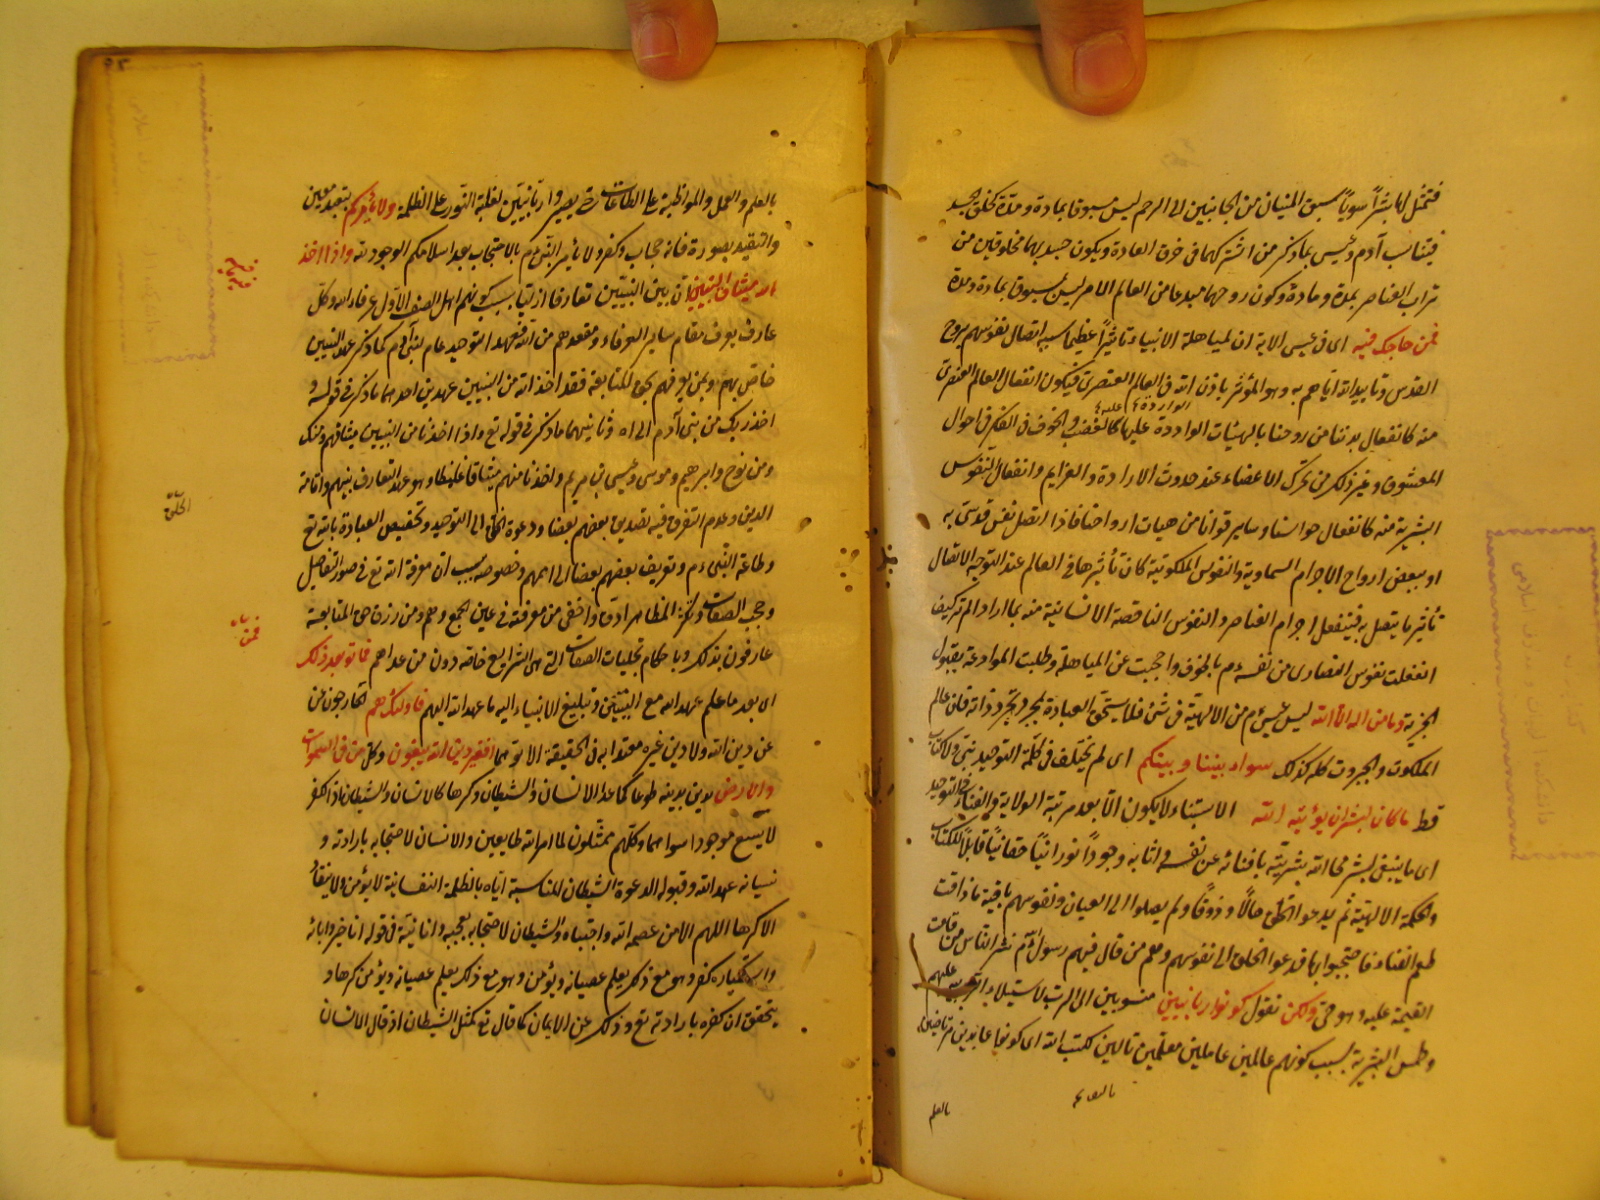 فتمثل لها بشراً سوياً سبق المنيان من الجانبين الى الرحم ليس مسبوقا بمادة ومدة كخلق الجسد
فيتناسب آدم وعيسى بما ذكر من اشتراكهما فى خرق العادة ويكون جسديهما مخلوقين من
تراب العناصر بمدة ومادة وكون روحهما مبدعا من العالم الامر ليس مسبوق بمادة ومدة
فمن حاجك فيه اى فى عيسى الاية ان لمباهلة الانبياء تاثيراً عظيما سببه اتصال نفوسهم بروح
القدس وتاييد الله اياهم به وهو المؤثر باذن الله فى العالم العنصرى فيكون انفعال العالم العنصرى
منه كانفعال بدننا من روحنا بالهيئات الواردة عليها كالغضب والخوف فى الفكر فى احوال
الواردة عليه
المعشوق وغير ذلك من تحرك الاعضاء عند حدوث الارادة والعزايم وانفعال النفوس
البشرية منه كانفعال حواسنا وساير قوانا من هيات ارواحنا فاذا اتصل نفس قدسى به
او ببعض ارواح الاجرام السماوية والنفوس الملكوتية كان تأثيرها فى العالم عند التوجه الاتصال
تأثير ما يتصل به فينفعل اجرام العناصر والنفوس الناقصة الانسانية منه بما اراد الم تر كيف
انفعلت نفوس النصارى من نفسه م بالخوف واحجبت عن المباهلة وطلبت الموادعة بقبول
الجزية وما من اله الا الله ليس عيسى م من الالهية فى شئ فلا يستحق العبادة بمجرد تجرد ذاته فان عالم
الملكوت والجبروت كله كذلك سواء بيننا وبينكم اى لم يختلف فى كلمة التوحيد نبى ولا كتاب
قط ما كان لبشر ان يؤتيه الله الاستنباء لا يكون الا بعد مرتبة الولاية والفناء فى التوحيد
اى ما ينبغى لبشر محا الله بشريته بافنائه عن نفسه واثابه وجوداً نورانياً حقانياً قابلاً للكتاب
والحكمة الالهية ثم يدعو الخلق حالاً وذوقاً ولم يصلوا الى العيان ونفوسهم باقية ما ذاقت
طعم الفناء فاحتجبوا بها فدعوا الخلق الى نفوسهم وهم من قال فيهم رسول الله م شر الناس من قامت
القيمة عليه وهو حى ولكن يقول كونوا ربانيين منسوبين الى الرب لاستيلاء الربوبية عليهم
وطمس البشرية بسبب كونهم عالمين عاملين معلمين تالين كتب الله اى كونوا عابدين مرتاضين
بالعلم
بالعلم والعمل والمواظبة على الطاعات حتى يصيروا ربانيين لغلبة النور على الظلمة ولا يأمركم بتعبد معين
والتقيد بصورة فانه حجاب وكفر ولا يأمر النبى م بالاحتجاب بعد اسلامكم الوجود لله واذ اخذ
الله ميثاق النبيين ان بين النبيين تعارفا ازليا بسبب كونهم اهل الصف الاول عرفاء الله وكل
عارف يعرف مقام ساير العرفاء ومقعدهم من الله فعهد التوحيد عام لبنى آدم كما ذكر وعهد النبيين
خاص بهم وبمن يعرفهم بحق المتابعة فقد اخذ الله من النبيين عهدين احدهما ما ذكر فى قوله واذ
اخذ ربك من بنى آدم الى اه وثانيهما ما ذكر فى قوله تع واذ اخذنا من النبيين ميثاقهم ومنك
ومن نوح وابرهيم وموسى وعيسى بن مريم واخذنا منهم ميثاقا غليظا وهو عهد التعارف بينهم واقامة
الدين وعدم التفرق فيه بتصديق بعضهم بعضا ودعوة الخلق الى التوحيد وتخصيص العبادة بالله تع
وطاعة النبى م وتعريف بعضهم بعضا الى اممهم وخصوصه بسبب ان معرفة الله تع فى صور التفاصيل
وحجب الصفات وتكثر المظاهر ادق واخفى من معرفته فى عين الجمع وهم ومن رزق حق المتابعة
عارفون بذلك وباحكام تجليات الصفات التى هى الشرايع خاصة دون من عداهم فمن تولى بعد ذلك
اى بعد ما علم عهد الله مع النبيين وتبليغ الانبياء اليه ما عهد الله اليهم فاولئك هم الخارجون من
عن دين الله ولا دين غيره معتدا به فى الحقيقة الا توهما افغير دين الله يبغون وكل من فى السموات
والارض يدين بدينه طوعا كما عدا الانسان والشيطان وكرها كالانسان والشيطان اذ الكفر
لا يسع موجودا سواهما وكلهم ممتثلون لما امر الله طايعين والانسان لاحتجابه بارادته و
نسيانه عهد الله وقبوله الدعوة الشيطان للمناسبة اياه بالظلمة النفسانية لا يؤمن ولا ينقاد
الا كرها اللهم الا من عصمه الله واجتباه والشيطان لاحتجابه بعجبه وانانيته فى قوله انا خير وابائه
واستكباره كفر وهو مع ذكر يعلم عصيانه ويؤمن وهو مع ذلك يعلم عصيانه ويؤمن كرها و
يتحقق ان كفره بارادته تع وذلك عين الايمان كما قال تع كمثل الشيطان اذ قال للانسان
الخلق
فمن